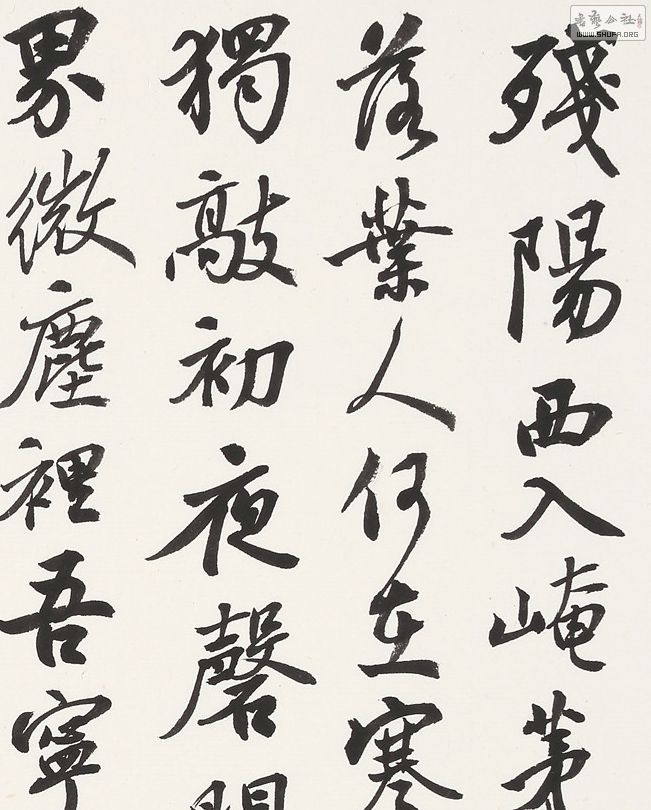 殘陽西入崦茅
落葉人何在寒
獨敲初夜磬閒
界微塵裡吾寧
書藝公社
WWW.SHUFA.ORG